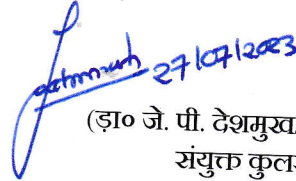 27/07/2023
(ड़ा० जे. पी. देशमुख
संयुक्त कुल